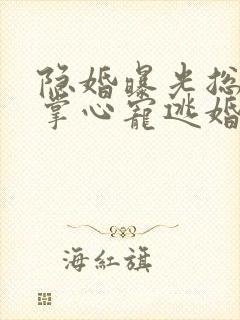 隐婚曝光总
掌心宠逃婚
海紅旗